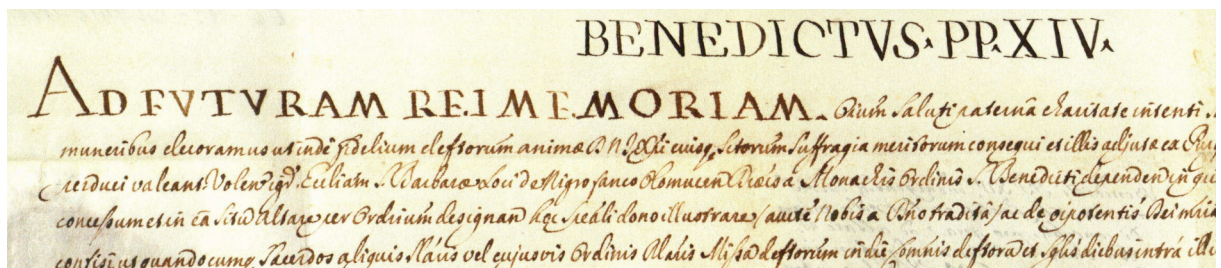 BENEDICTVS PP. XIV
AD FVTVRAM REI MEMORIAM. Oium saluti paterna charitate intenti
muneribus decoramus ut inde fidelium deftorum animæ D.N.J.Xpi eiusq Sctorum suffragia meritorum consequi et illis adjutæ ex
perduci valeant. Volen igr Eccliam S. Barbaræ Loci de Nigro Olomucen Diæcis a Monachis Ordinis S. Benedicti dependen in
concessum et in ea Situm Altare per Ordrium designan hoc spcali dono illustrare aucte Nobis a Dno tradita ac de oipotentis Dei
confisi ut quandocumq Sacerdos aliquis vel cujusvis Ordinis Missam deftorum in die omnis deftorum et diebus intra